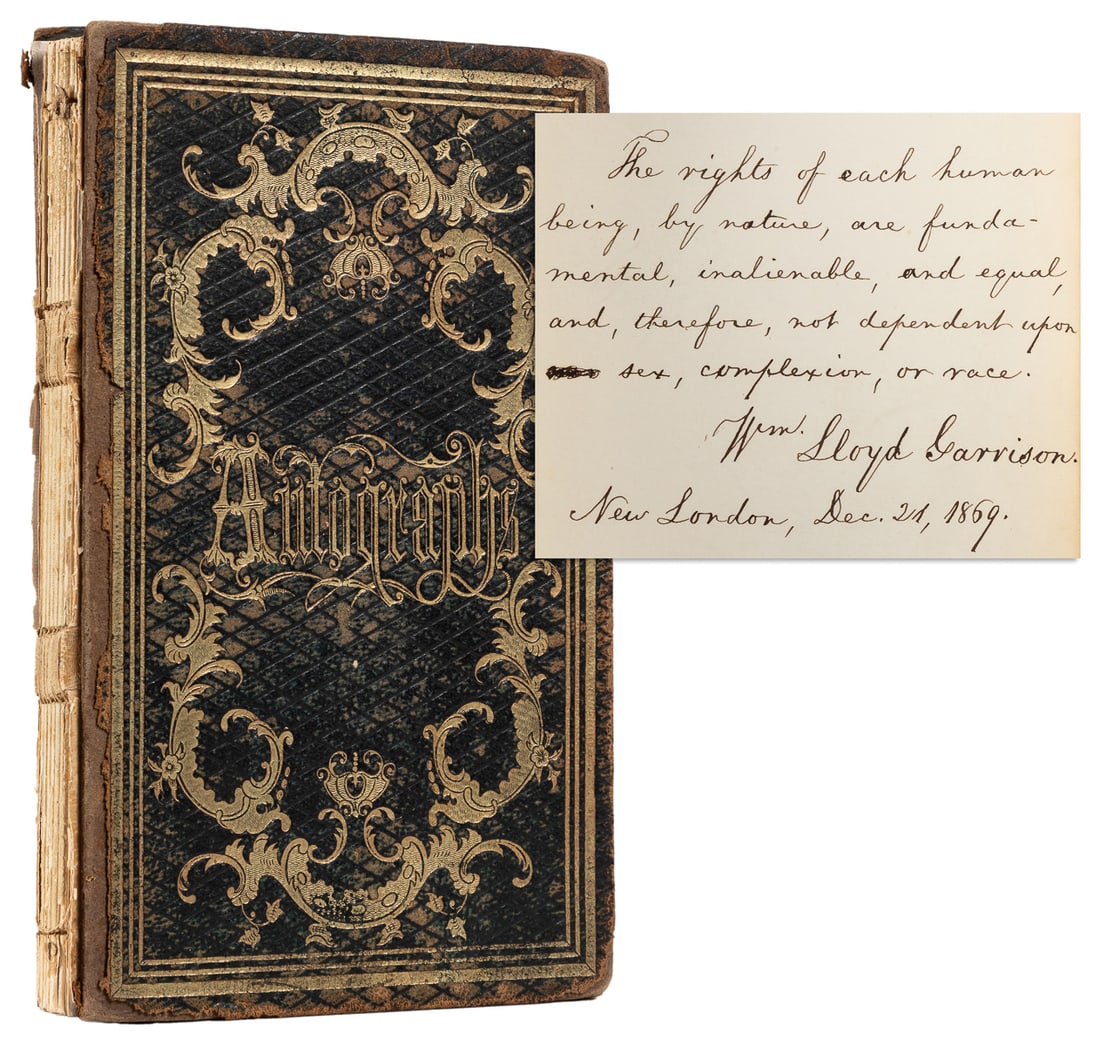 Autographs
The rights of each human
being, by nature, are funda-
mental, inalienable, and equal,
and, therefore, not dependent upon
sex, complexion, or race.
Wm. Lloyd Garrison.
New London, Dec. 21, 1869.